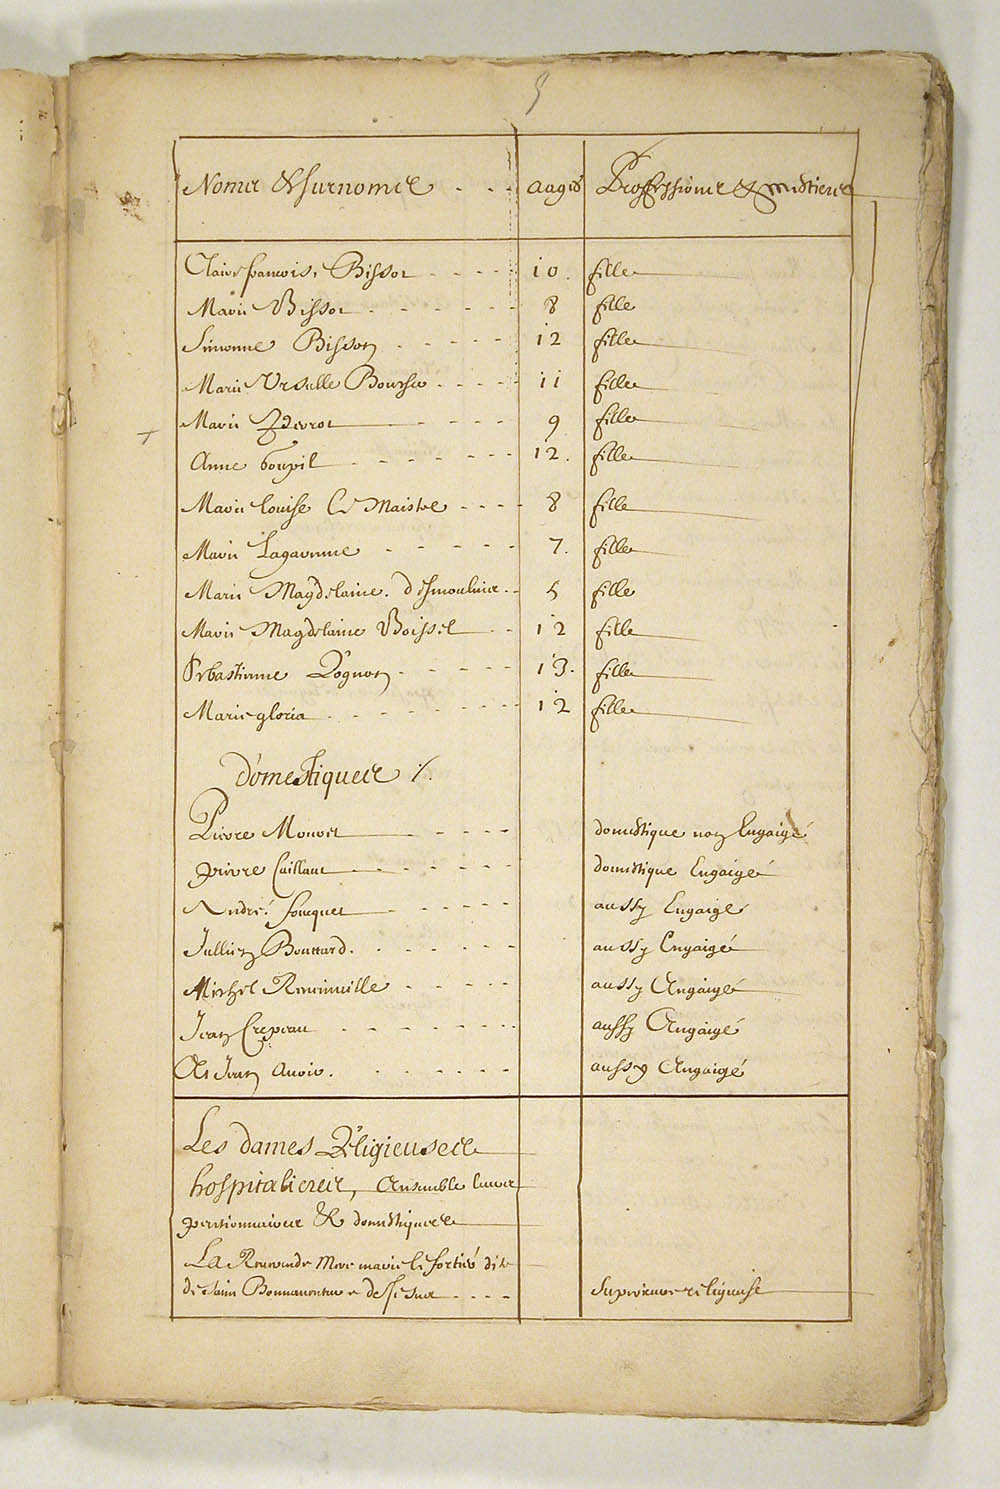 5
Nomes & surnomes aages Professiones & mestieres
Claire francoise Bissot 10. fille
Marie Bissot 8 fille
Simonne Bisson 12 fille
Marie Ursulle Bourse 11 fille
Marie 9 fille
Anne Goupil 12. fille
Marie louise Le Maistre 8 fille
Marie Lagarenne 7. fille
Marie Magdelaine. desmoulines 5 fille
Marie Magdelaine Boissel 12 fille
Sebastienne Rognon 13. fille
Marie gloria 12 fille
Domestiques /.
Pierre Mouret domestique non Engaigé
pierre Caillaut domestique Engaigé
André foucquet aussy Engaigé
Jullien Bouttard. aussy Engaigé
Michel Reminville aussy Engaigé
Jean Crepeau aussy Engaigé
Et Jean auvir. aussy Engaigé
Les dames Religieuses
hospitalieres, Ensemble leures
pentionnaires & domestiques
La Reverende Mere marie le fortié dite
de saint Bonnaventure de Jesus superieure religieuse